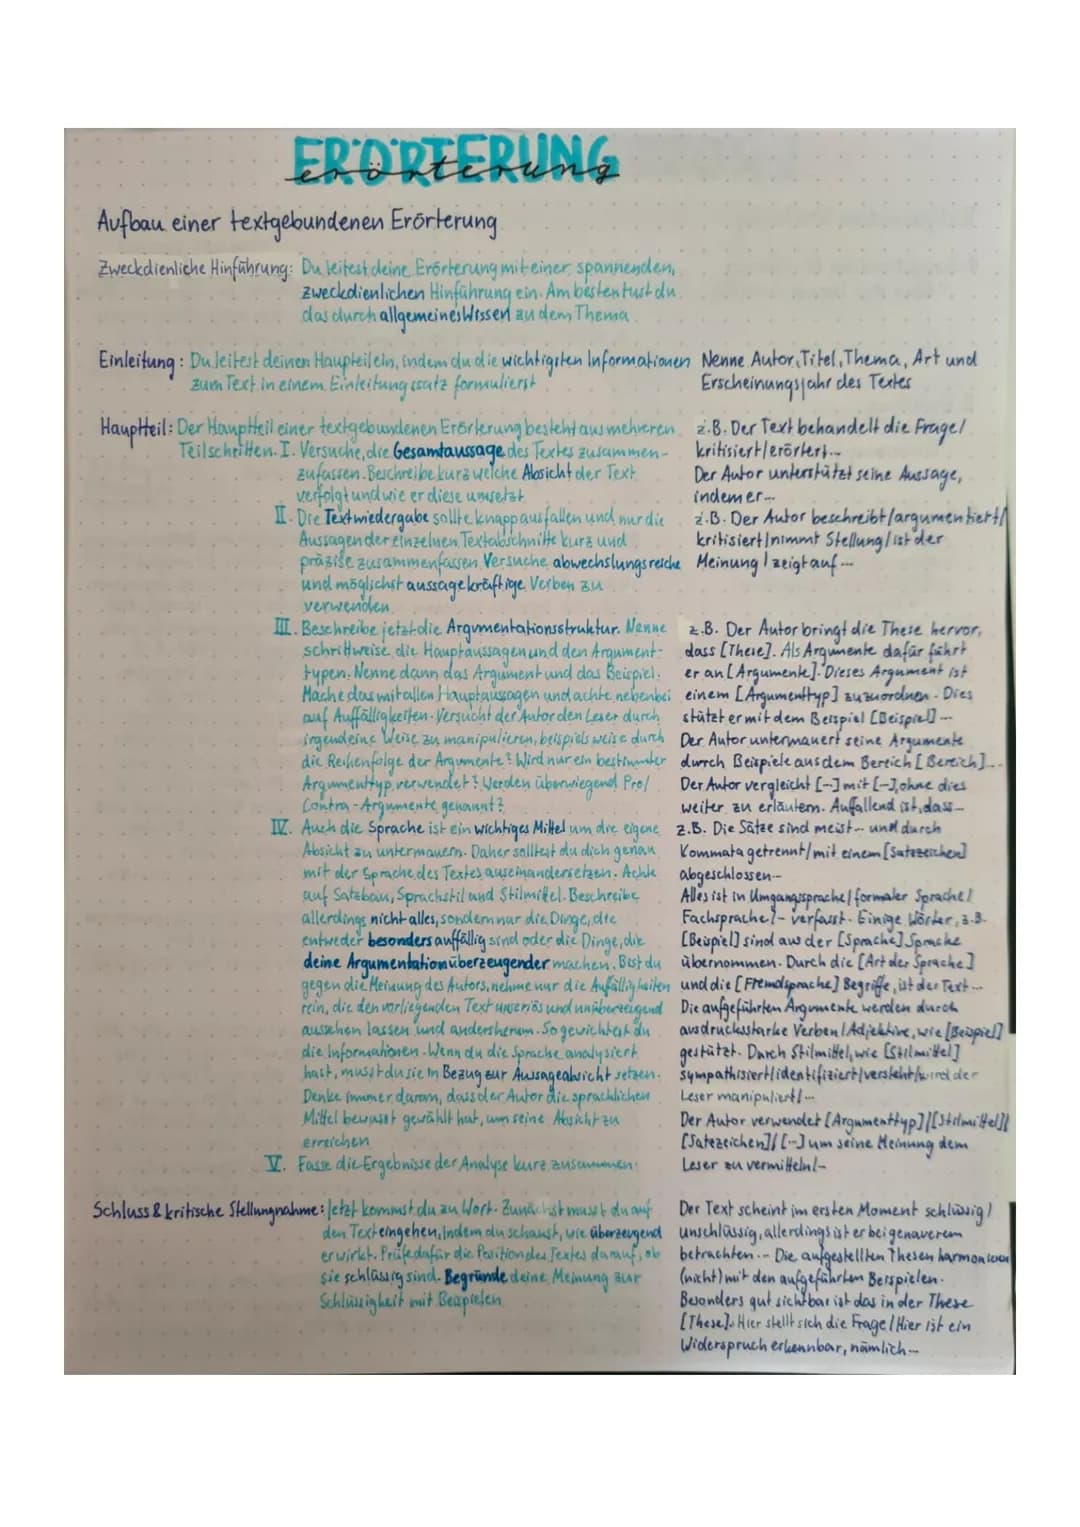 ERÖRTERUNG
erörterung
Aufbau einer textgebundenen Erörterung
Zweckdienliche Hinführung: Du leitest deine Erörterung mit einer spannenden,
zweckdienlichen Hinführung ein. Am besten tust du
das durch allgemeines Wissen zu dem Thema
Einleitung: Du leitest deinen Hauptteil ein, indem du die wichtigsten Informationen
zum Text in einem Einleitungssatz formulierst
Nenne Autor, Titel, Thema, Art und
Erscheinungsjahr des Textes
Hauptteil: Der Hauptteil einer textgebundenen Erörterung besteht aus mehreren
Teilschritten. I. Versuche, die Gesamtaussage des Textes zusammen-
zufassen. Beschreibe kurz welche Absicht der Text
verfolgt und wie er diese umsetzt
z.B. Der Text behandelt die Frage/
kritisiert/erörtert...
Der Autor unterstützt seine Aussage,
indem er...
II. Die Textwiedergabe sollte knapp ausfallen und nur die
Aussagen der einzelnen Textabschnitte kurz und
präzise zusammenfassen. Versuche, abwechslungsreiche
und möglichst aussagekräftige Verben zu
verwenden
z.B. Der Autor beschreibt/argumentiert/
kritisiert/nimmt Stellung/ist der
Meinung/zeigt auf...
III. Beschreibe jetzt die Argumentationsstruktur. Nenne
schrittweise die Hauptaussagen und den Argument-
typen. Nenne dann das Argument und das Beispiel.
Mache das mit allen Hauptaussagen und achte nebenbei
auf Auffälligkeiten. Versucht der Autor den Leser durch
irgendeine Weise zu manipulieren, beispielsweise durch
die Reihenfolge der Argumente? Wird nur ein bestimmter
Argumenttyp verwendet? Werden überwiegend Pro/
Contra-Argumente genannt?
z.B. Der Autor bringt die These hervor,
dass [These]. Als Argumente dafür führt
er an [Argumente]. Dieses Argument ist
einem [Argumenttyp] zuzuordnen. Dies
stützt er mit dem Beispiel [Beispiel]...
Der Autor untermauert seine Argumente
durch Beispiele aus dem Bereich [Bereich]...
Der Autor vergleicht [...] mit [...], ohne dies
weiter zu erläutern. Auffallend ist, dass...
IV. Auch die Sprache ist ein wichtiges Mittel um die eigene
Absicht zu untermauern. Daher solltest du dich genau
mit der Sprache des Textes auseinandersetzen. Achte
auf Satzbau, Sprachstil und Stilmittel. Beschreibe
allerdings nicht alles, sondern nur die Dinge, die
entweder besonders auffällig sind oder die Dinge, die
deine Argumentation überzeugender machen. Bist du
gegen die Meinung des Autors, nehme nur die Auffälligkeiten
rein, die den vorliegenden Text unseriös und unüberzeugend
aussehen lassen und andersherum. So gewichtest du
die Informationen. Wenn du die Sprache analysiert
hast, musst du sie in Bezug zur Aussageabsicht setzen.
Denke immer daran, dass der Autor die sprachlichen
Mittel bewusst gewählt hat, um seine Absicht zu
erreichen
z.B. Die Sätze sind meist... und durch
Kommata getrennt/mit einem [Satzzeichen]
abgeschlossen...
Alles ist in Umgangssprache/formaler Sprache/
Fachsprache/... verfasst. Einige Wörter, z.B.
[Beispiel] sind aus der [Sprache] Sprache
übernommen. Durch die [Art der Sprache]
und die [Fremdsprache] Begriffe, ist der Text...
Die aufgeführten Argumente werden durch
ausdrucksstarke Verben/Adjektive, wie [Beispiel]
gestützt. Durch Stilmittel, wie [Stilmittel]
sympathisiert/identifiziert/versteht/wird der
Leser manipuliert/...
Der Autor verwendet [Argumenttyp]/[Stilmittel]/
[Satzzeichen]/[...] um seine Meinung dem
Leser zu vermitteln/...
V. Fasse die Ergebnisse der Analyse kurz zusammen.
Schluss & kritische Stellungnahme: Jetzt kommst du zu Wort. Zunächst musst du auf
den Text eingehen, indem du schaust, wie überzeugend
er wirkt. Prüfe dafür die Position des Textes darauf, ob
sie schlüssig sind. Begründe deine Meinung zur
Schlüssigkeit mit Beispielen
Der Text scheint im ersten Moment schlüssig/
unschlüssig, allerdings ist er bei genauerem
betrachten... Die aufgestellten Thesen harmonieren
(nicht) mit den aufgeführten Beispielen.
Besonders gut sichtbar ist das in der These
[These]. Hier stellt sich die Frage/Hier ist ein
Widerspruch erkennbar, nämlich...